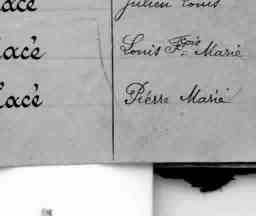 Placé Julien Louis
Placé Louis Fçois Marié
Placé Pièrre Marié